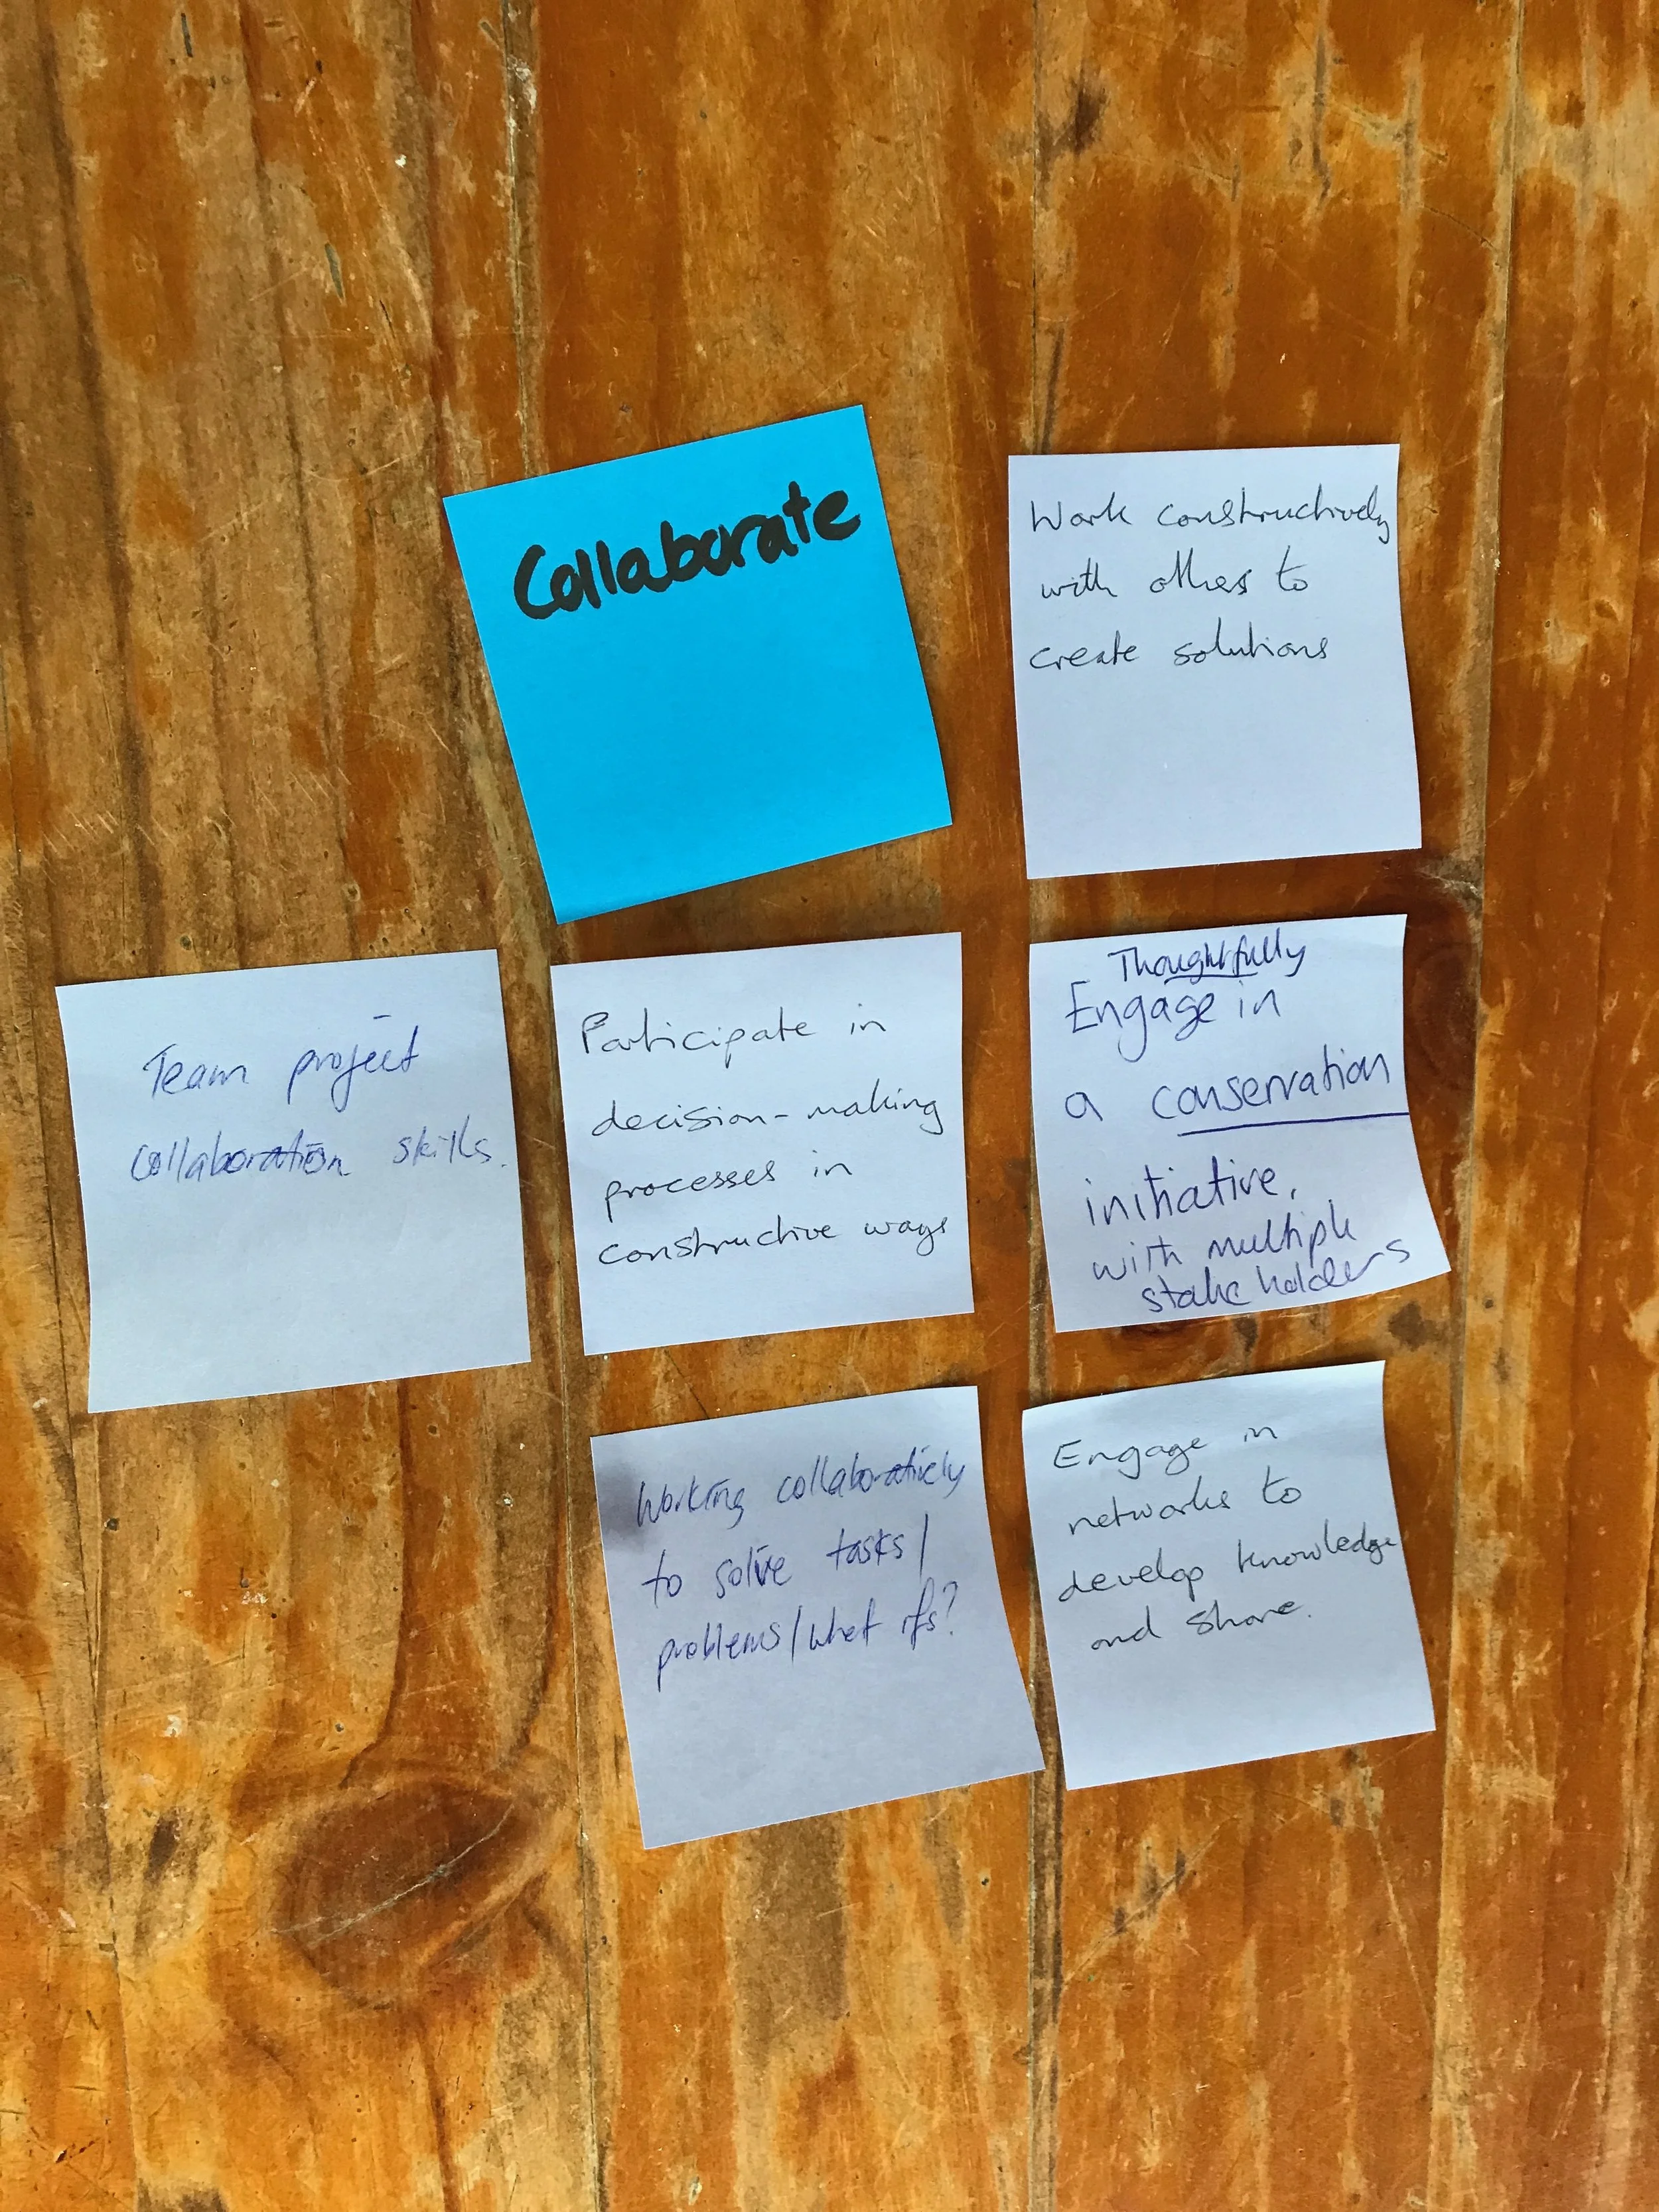 Collaborate
Work constructively
with others to
create solutions
Team project
collaboration skills.
Participate in
decision-making
processes in
constructive ways
Thoughtfully
Engage in
a conservation
initiative,
with multiple
stakeholders
Working collaboratively
to solve tasks/
problems/what ifs?
Engage in
networks to
develop knowledge
and share.